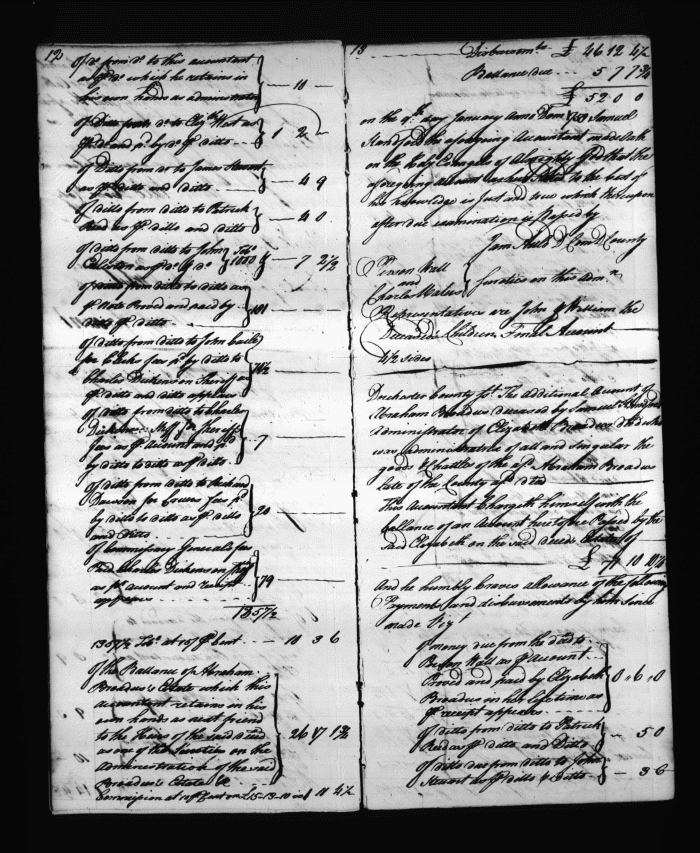 12
of do from do to this accountant
as pr do which he retains in
his own hands as administrator } — 10 —
of Ditto from do to West as
pr do and pd by do pr ditto } 1 2 —
of Ditto from ditto to James Stewart
as pr ditto and ditto } — 4 9
of ditto from ditto to Patrick
Read as pr ditto and ditto } — 4 0
of ditto from ditto to John
as pr do & do } Tobo 1000 } — 7 2½
of ditto from ditto to ditto as
pr Note Proved and paid by
ditto pr ditto } 101
of ditto from ditto to John
for Clerks fees pd by ditto to
Charles Dickinson Sheriff as
pr ditto and ditto appears
of ditto from ditto to Charles
Dickinson for Sheriff
fees as pr account and pd
by ditto to ditto as pr ditto } 7
of ditto from ditto to Richard
Dawson for fees pd
by ditto to ditto as pr ditto
and Ditto } 20
of Commissary Generals fees
Paid Charles Dickinson
as pr account and receipt
appears } 79
1357½
1357½ Tobo at 15/ pr Cent — 10 3 6
of the Ballance of Abraham
Broadus's Estate which this
accountant retains in his
own hands as next friend
to the heirs of the said deced
as one of the Sureties on the
Administration of the said
Broadus's Estate &c } 26 17 1¾
Commission at pr Cent on £15-13-10 is 1 11 4½
13
Disbursemts £ 46 12 4½
Ballance due - - - 5 7 7¾
£ 52 0 0
on the 9th day January Anno Dom 1759 Samuel
Standford the aforegoing Accountant made Oath
on the Holy Evangels of Almighty God that the
aforegoing Account as Stated to the best of
his knowledge is Just and true which thereupon
after due examination is passed by
Jam Auld D Com D County
Wall
and
Charles
} Sureties on this Adm.n
Representatives are John & William the
Deceaseds Children Final Account
4½ sides
Dorchester County ss The additional Account of
Abraham Broadus deceased by Samuel Standford
Administrator of Elizabeth Broadus decd who
was administratrix of all and singular the
goods & chattles of the sd Abraham Broadus
late of the County afd deced
This Accountant Chargeth himself with the
ballance of an Account heretofore Passed by the
said Elizabeth on the said deceds Estate of
£ 10
And he humbly craves allowance of the following
Payments and disbursements by him since
made Viz.t
of money due from the deced to
Wall as pr Account
Proved and paid by Elizabeth
Broadus in her lifetime as
pr receipt appears } 0 . 6 . 0
of ditto from ditto to Patrick
Read as pr ditto and Ditto } - 5 0
of ditto due from ditto to John
Stewart as pr ditto & ditto } - 3 6